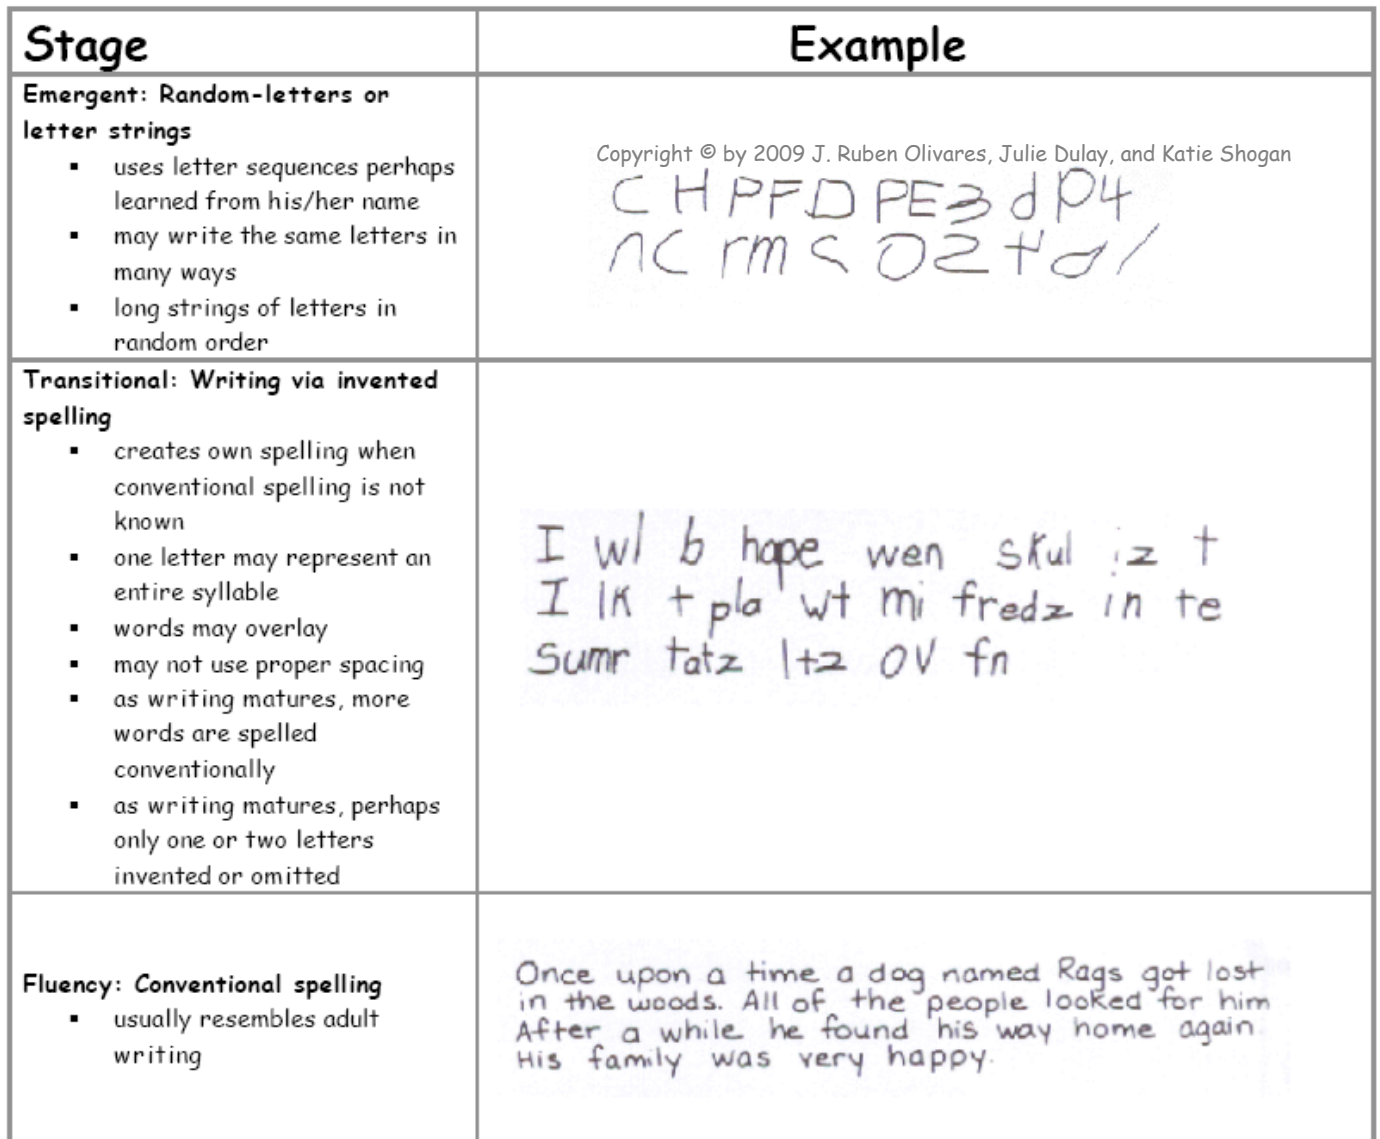 Stage
Example
Emergent: Random-letters or
letter strings
▪ uses letter sequences perhaps
learned from his/her name
▪ may write the same letters in
many ways
▪ long strings of letters in
random order
Copyright © by 2009 J. Ruben Olivares, Julie Dulay, and Katie Shogan
C H P F D P E 3 d P 4
n C r m < O 2 t d /
Transitional: Writing via invented
spelling
▪ creates own spelling when
conventional spelling is not
known
▪ one letter may represent an
entire syllable
▪ words may overlay
▪ may not use proper spacing
▪ as writing matures, more
words are spelled
conventionally
▪ as writing matures, perhaps
only one or two letters
invented or omitted
I wl b hape wen skul iz t
I lk t pla wt mi fredz in te
Sumr tatz ltz OV fn
Fluency: Conventional spelling
▪ usually resembles adult
writing
Once upon a time a dog named Rags got lost
in the woods. All of the people looked for him
After a while he found his way home again
His family was very happy.